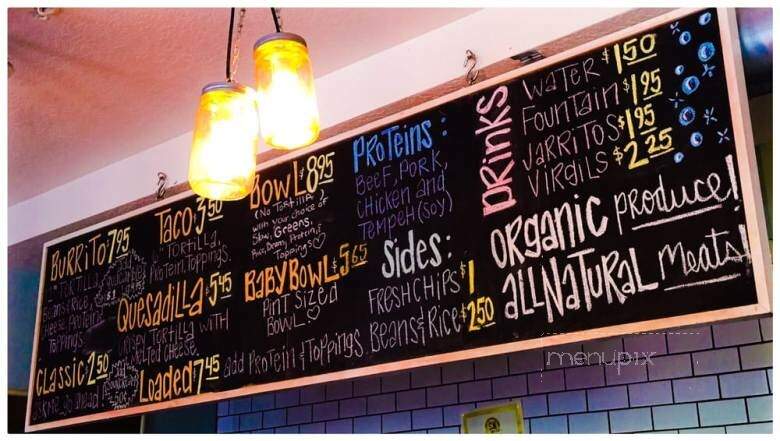 BURRITO 7.95
TORTILLA,
Beans & Rice,
Cheese, Protein,
Toppings
CLASSIC 2.50
Ask me, go ahead!
TACO 3.50
6" TORTILLA,
Protein, Toppings.
QUESADILLA $5.45
TORTILLA WITH
MELTED CHEESE
Loaded 7.45 add Protein & Toppings
BOWL $8.95
(No Tortilla)
with your choice of
Slaw, Greens,
Rice, Beans, Protein &
Toppings
BABY BOWL $5.65
PINT SIZED
BOWL!
Proteins:
Beef, Pork,
Chicken and
Tempeh (soy)
Sides:
FRESH CHIPS $1
Beans & Rice $2.50
DRINKS
WATER $1.50
FOUNTAIN $1.95
JARRITOS $1.95
VIRGILS $2.25
ORGANIC produce!
ALL NATURAL meats!
menupix